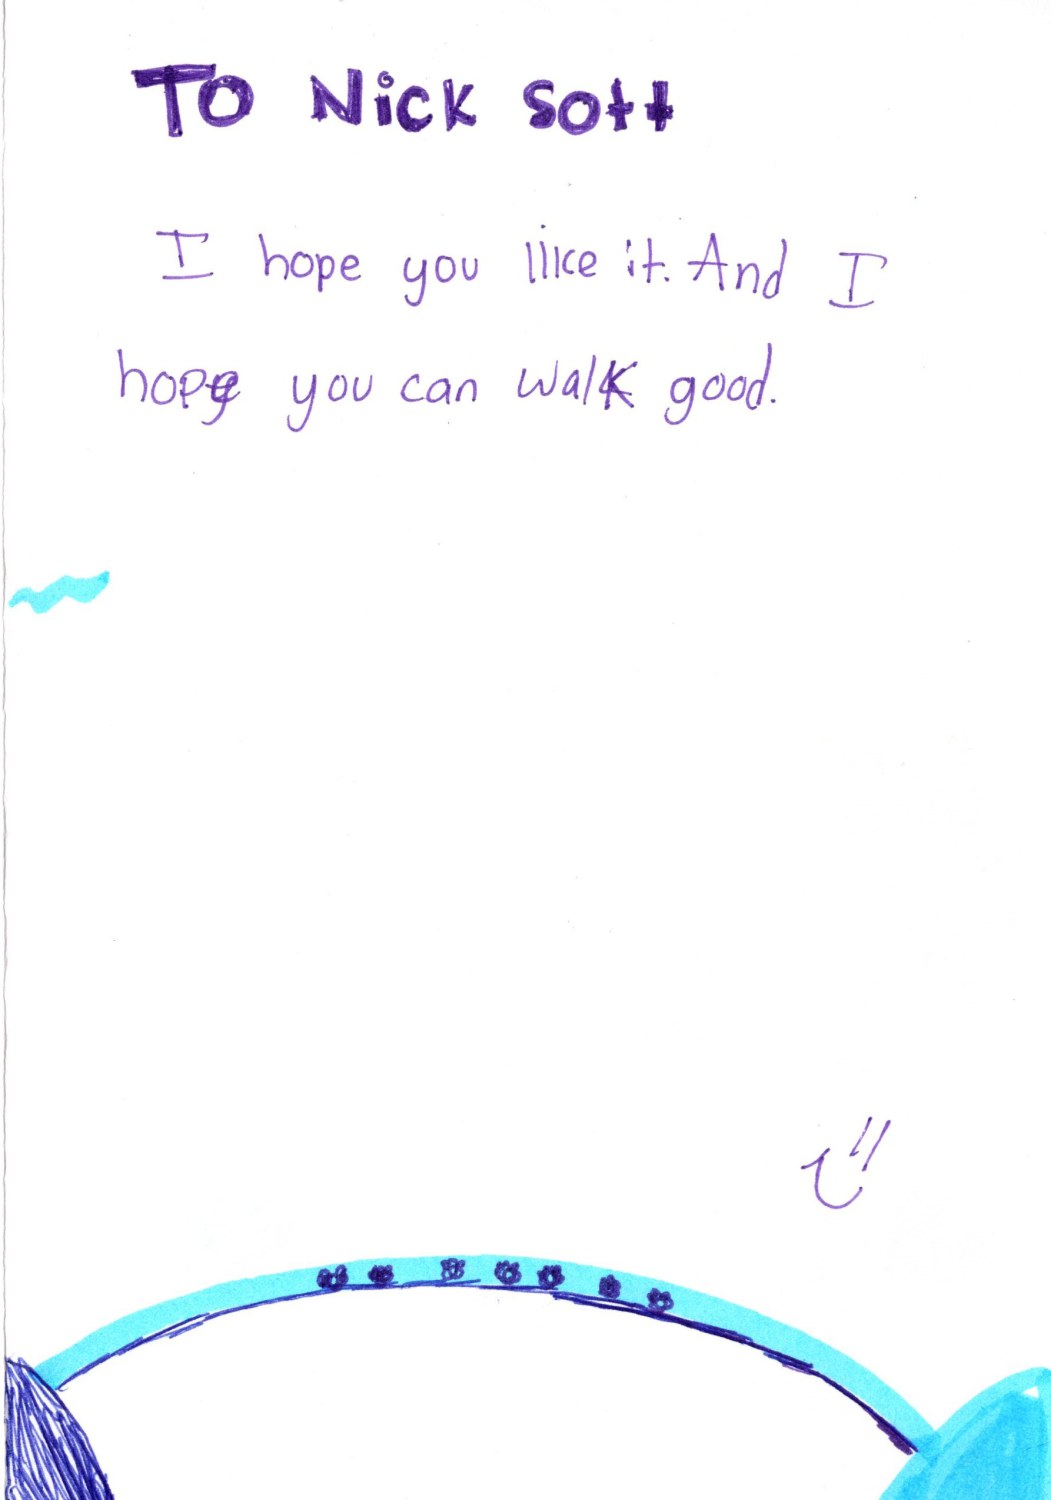 To Nick Sott
I hope you like it. And I
hope you can walk good.